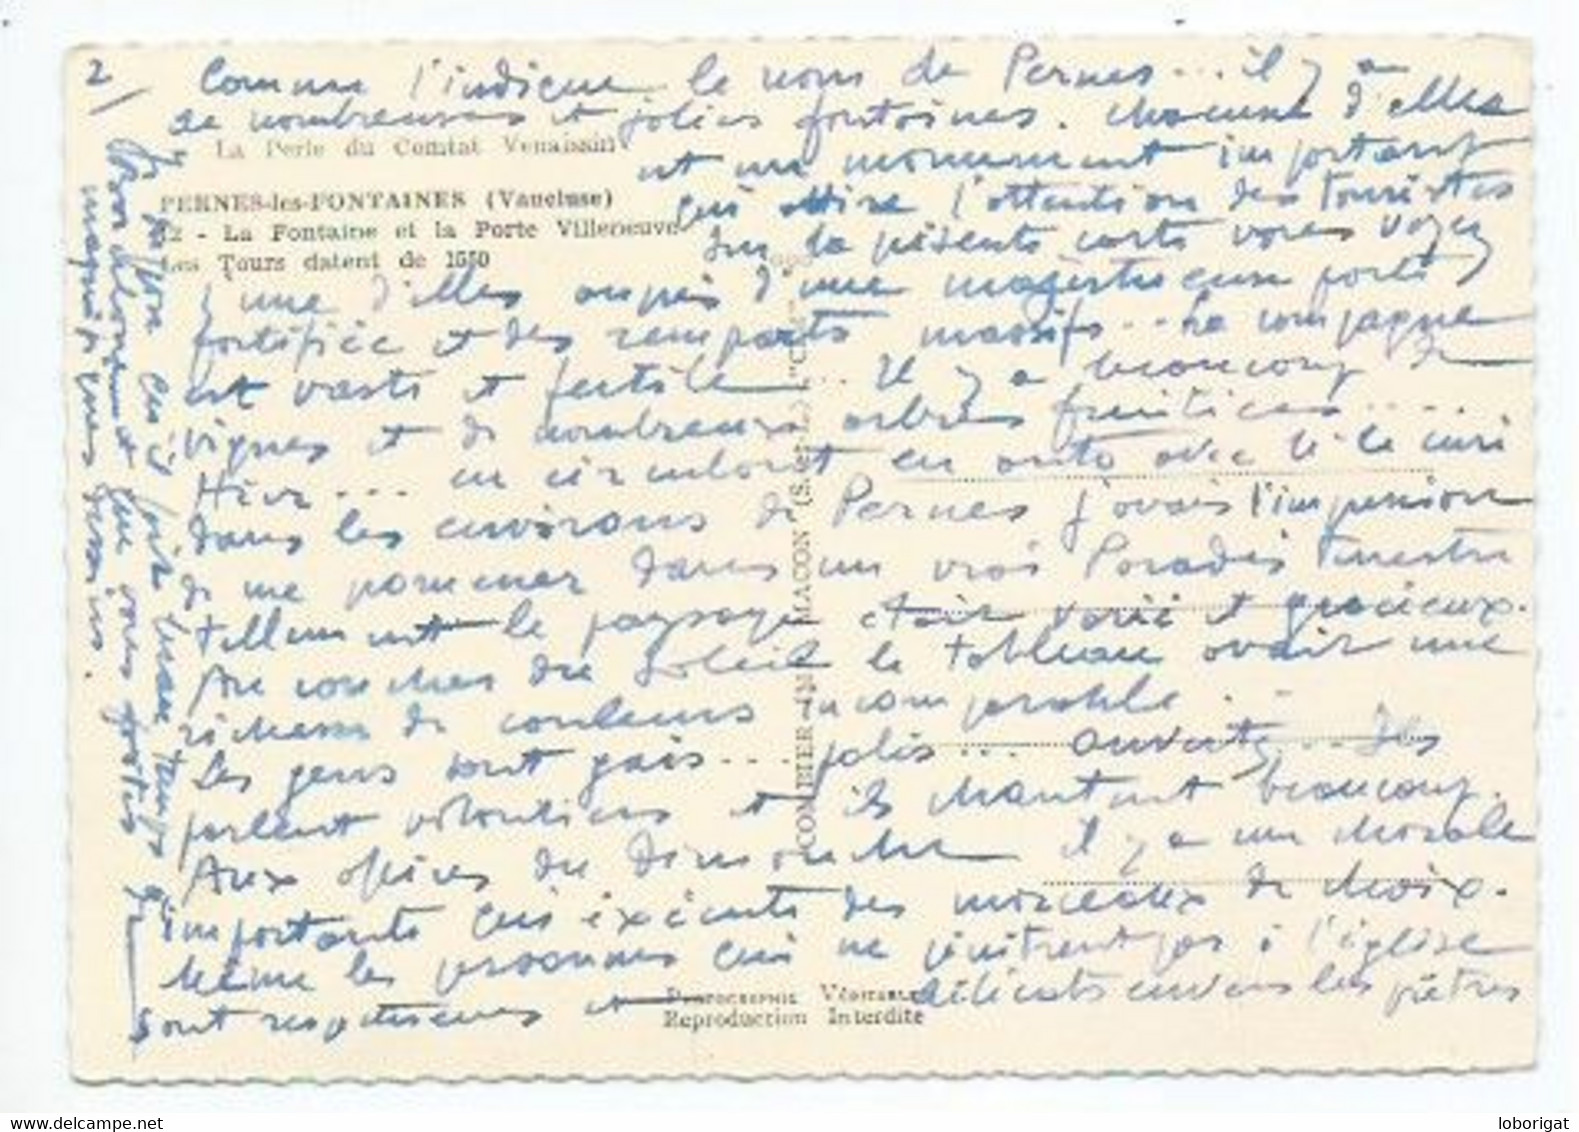 2/
Comme l'indique le nom de Pernes... il y a
de nombreuses et jolies fontaines. chacune d'elles
La Perle du Comtat Venaissin
est un monument important
PERNES-les-FONTAINES (Vaucluse)
qui attire l'attention des touristes
12 - La Fontaine et la Porte Villeneuve
sur la présente carte vous voyez
Les Tours datent de 1550
l'une d'elles auprès d'une majestueuse porte
fortifiée et des remparts massifs... La campagne
est vaste et fertile... Il y a beaucoup de
vignes et de nombreux arbres fruitiers.....
Hier... en circulant en auto avec M. le curé
dans les environs de Pernes j'avais l'impression
de me promener dans un vrai Paradis Terrestre
tellement le paysage était varié et gracieux.
Au coucher du Soleil le tableau avait une
richesse de couleurs incomparable...
Les gens sont gais... polis... ouverts... Ils
parlent volontiers et ils chantent beaucoup.
Aux offices du Dimanche il y a une chorale
importante qui exécute des morceaux de choix.
Même les personnes qui ne pénètrent pas à l'église
sont respectueuses et délicats envers les prêtres
PHOTOGRAPHIE VÉRITABLE
Reproduction Interdite
COMBIER IMP. MACON (S.-et-L.) "C
Bon délassement que vous portez
magnifiques dessins.